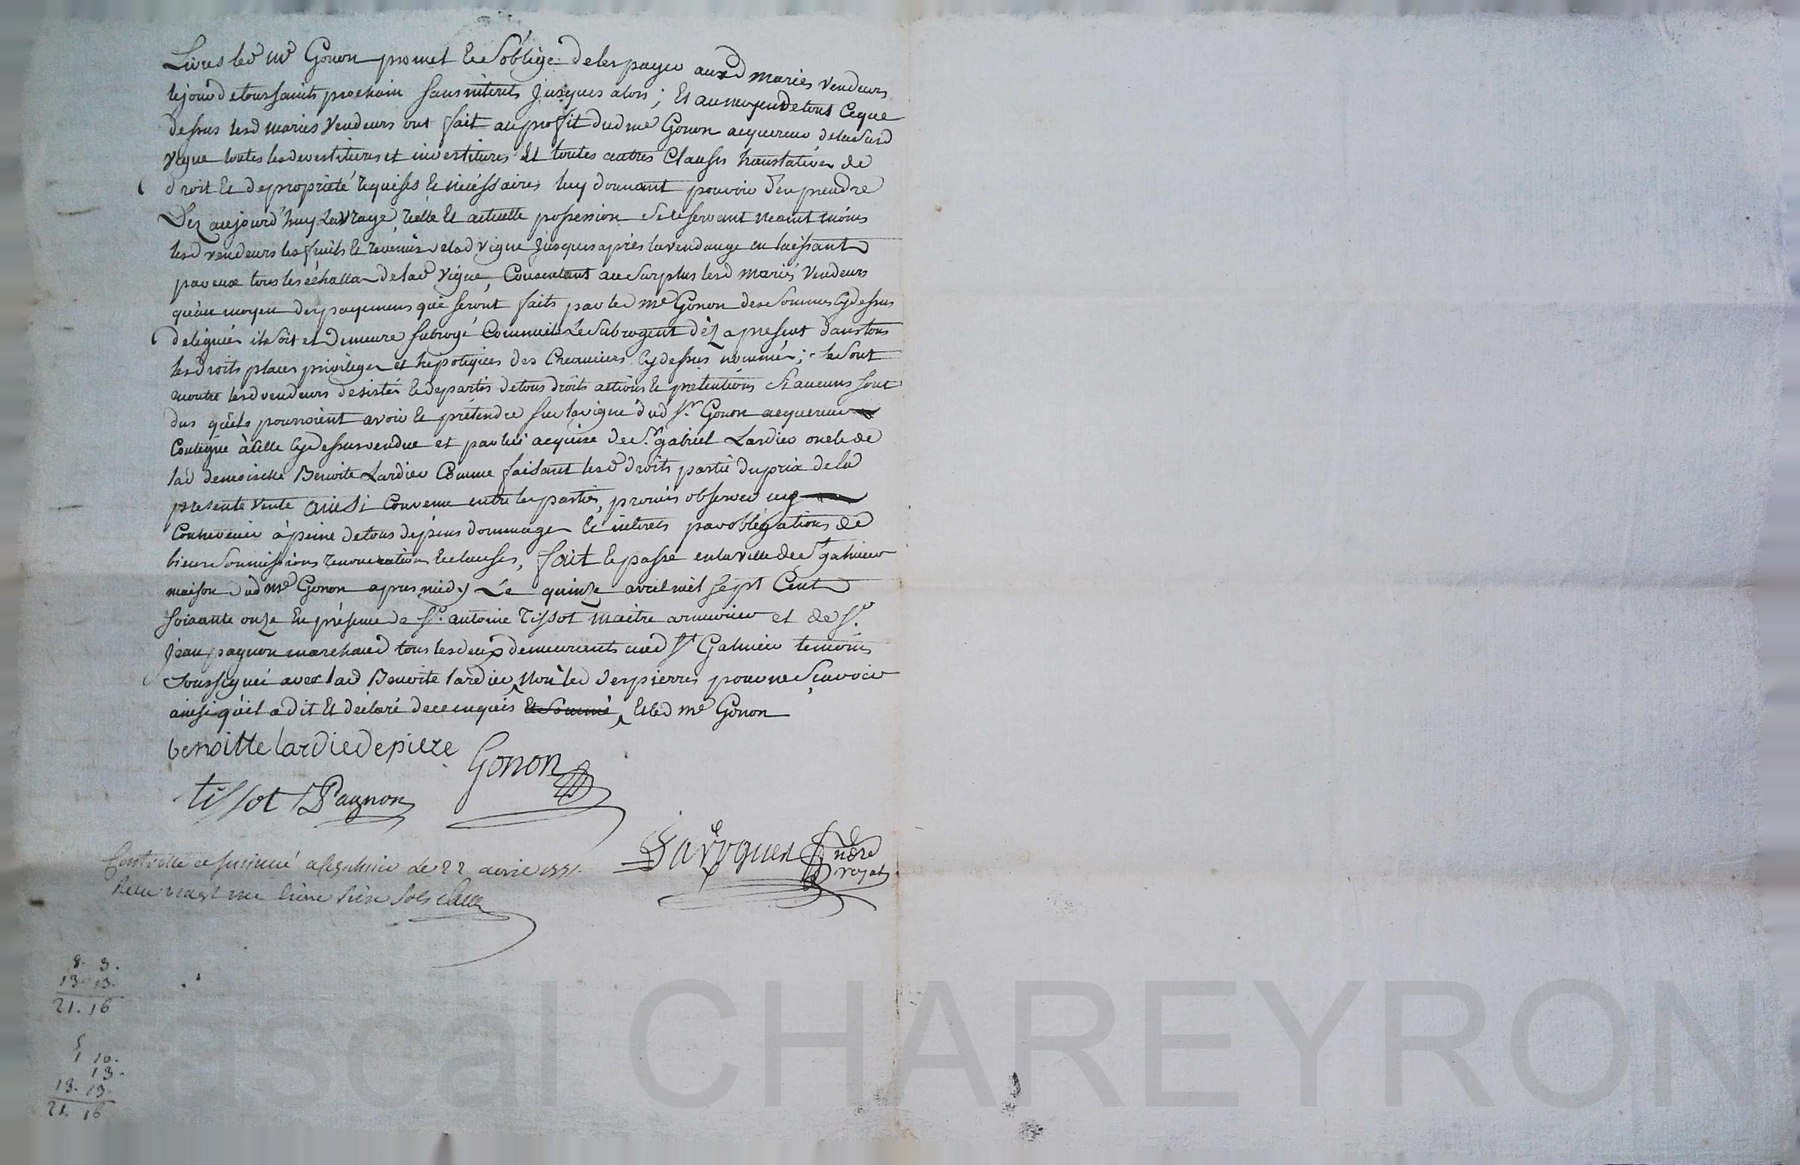 Livres led. me Gonon promet et s'oblige de les payer auxd mariés vendeurs
le jour de toussaints prochain sans interets jusques alors ; Et au moyen de tout ce que
dessus lesd mariés vendeurs ont fait au profit dud me Gonon acquereur de lasusd
vigne toutes les devestitures et investitures et toutes autres clauses translatives de
droit et de propriété requises et nécéssaires luy donnant pouvoir d'en prendre
Dez aujourd'huy la vraye, réelle et actuelle possession se reservant neantmoins
lesd vendeurs les fruits et revenus de lad vigne jusques après la vendange en laissant
par eux tous les échallas de lad vigne, Consentant au surplus lesd mariés vendeurs
qu'au moyen des payemens qui seront faits par led me Gonon des sommes cy dessus
deléguées il soit et demeure subrogé comme ils le subrogent dèz a present dans tous
les droits places privileges et hepoteques des creanciers cy dessus nommés ; se sont
en outre lesd vendeurs désistés et departis de tous droits actions et prétentions si aucuns sont
dus qu'ils pourroient avoir et prétendre sur la vigne dud sr Gonon acquereur
Contigue à celle cy dessus vendue et par lui acquise de sr gabriel Lardier oncle de
lad demoiselle Benoite Lardier Comme faisant lesd droits partie du prix de la
presente vente ainsi convenu entre les parties, promis observer
Contrevenir à peine de tous dépens dommages et interets par obligations de
biens soumissions renonciations et clauses, fait et passé en la ville de st galmier
maison dud me Gonon apres midy Le quinze avril mil sept Cent
soixante onze En présence de sr. antoine Tissot maitre armurier et de sr.
Jean pagnon marchand tous les deux demeurants aud st Galmier temoins
soussignés avec lad Benoite lardier, non led Despierres pour ne sçavoir
ainsi qu'il a dit et déclaré de ce enquis et sommé, Et led me Gonon
benoitte lardie depiere Gonon
tissot Pagnon
nore
royal
Controlle et insinué a st galmier le 22 avril 1771.
Recu vingt une livre seize sols
8. 3.
13. 13.
21. 16
1 10.
13.
13. 13.
21. 16
ascal CHAREYRON